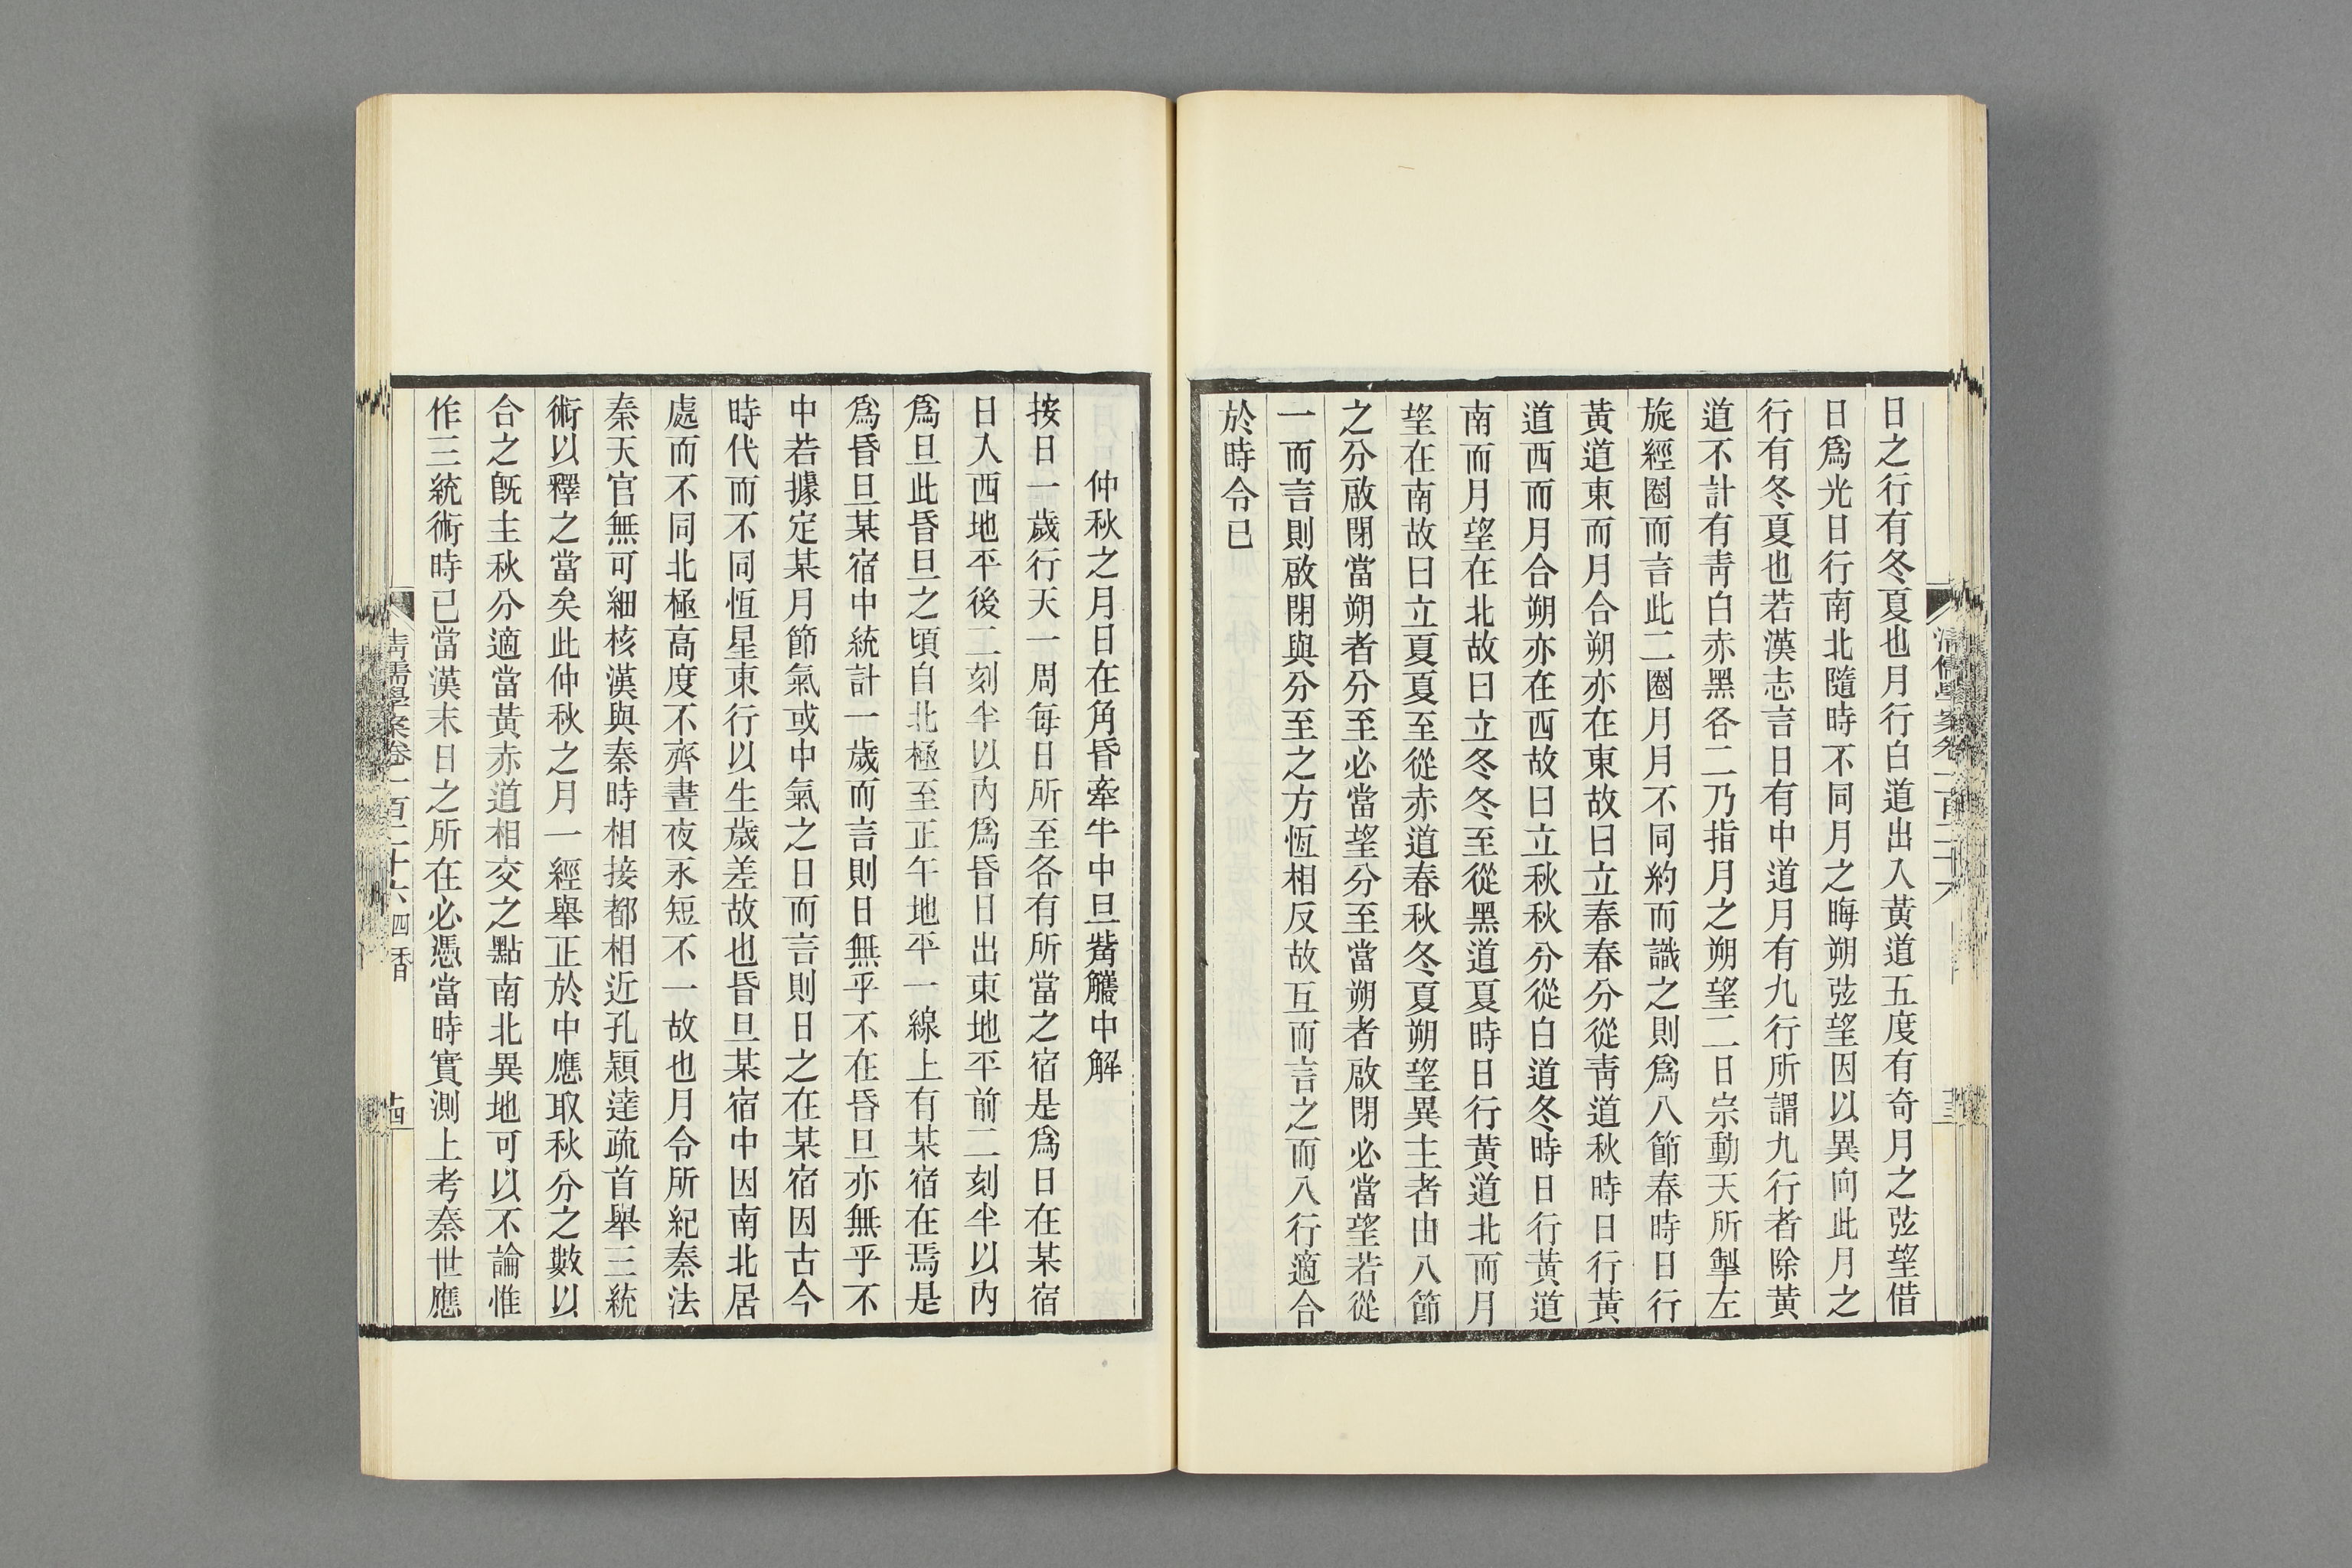 日之行有冬夏也月行白道出入黃道五度有奇月之弦望借
日爲光日行南北隨時不同月之晦朔弦望因以異向此月之
行有冬夏也若漢志言日有中道月有九行所謂九行者除黃
道不計有靑白赤黑各二乃指月之朔望二日宗動天所掣左
旋經圈而言此二圈月月不同約而識之則爲八節春時日行
黃道東而月合朔亦在東故曰立春春分從靑道秋時日行黃
道西而月合朔亦在西故曰立秋秋分從白道冬時日行黃道
南而月望在北故曰立冬冬至從黑道夏時日行黃道北而月
望在南故曰立夏夏至從赤道春秋冬夏朔望異主者由八節
之分啟閉當朔者分至必當望分至當朔者啟閉必當望若從
一而言則啟閉與分至之方恆相反故互而言之而八行適合
於時令已
清儒學案卷一百二十六
十三
仲秋之月日在角昏牽牛中旦觜觿中解
按日一歲行天一周每日所至各有所當之宿是爲日在某宿
日入西地平後二刻半以內爲昏日出東地平前二刻半以內
爲旦此昏旦之頃自北極至正午地平一線上有某宿在焉是
爲昏旦某宿中統計一歲而言則日無乎不在昏旦亦無乎不
中若據定某月節氣或中氣之日而言則日之在某宿因古今
時代而不同恆星東行以生歲差故也昏旦某宿中因南北居
處而不同北極高度不齊晝夜永短不一故也月令所紀秦法
秦天官無可細核漢與秦時相接都相近孔穎達疏首舉三統
術以釋之當矣此仲秋之月一經舉正於中應取秋分之數以
合之旣主秋分適當黃赤道相交之點南北異地可以不論惟
作三統術時已當漢末日之所在必憑當時實測上考秦世應
清儒學案卷一百二十六 四香
十四